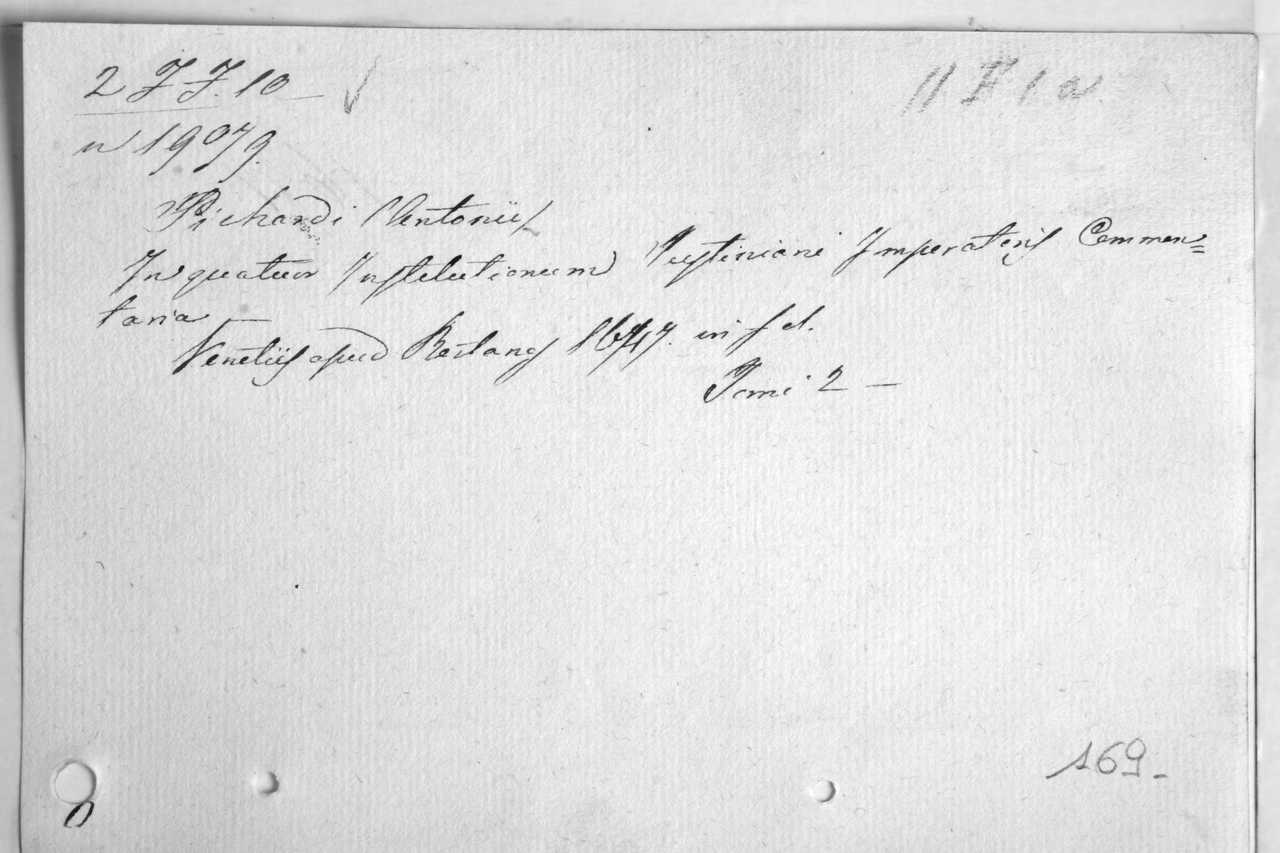 2 J J. 10
11 F 1 a
n 19079.
Pichardi Antonii
In quatuor Institutionum Justiniani Imperatoris Commen=
taria
Venetiis apud Bertanos 1647. in fol.
Tomi 2
169
0